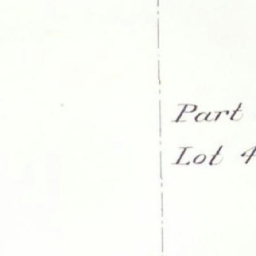 Part
Lot 4